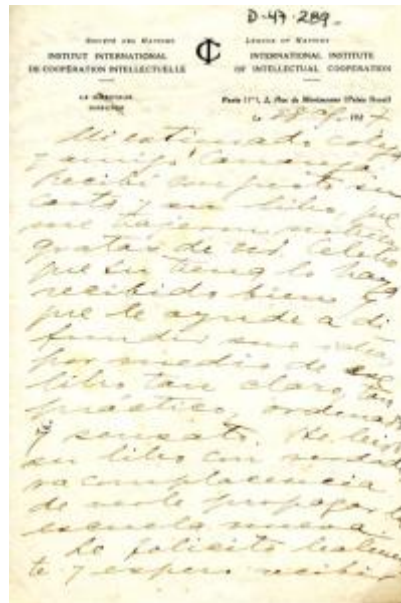 D-47-289.
SOCIÉTÉ DES NATIONS
INSTITUT INTERNATIONAL
DE COOPÉRATION INTELLECTUELLE
LEAGUE OF NATIONS
INTERNATIONAL INSTITUTE
OF INTELLECTUAL COOPERATION
LE DIRECTEUR
Paris Iᵉʳ, 2, Rue de Montpensier (Palais Royal)
Le 193
Mi estimado colega
y amigo
recibí con gusto su
carta y su libro, que
me trajeron noticias
gratas de Ud. Celebro
que su tierra lo haya
recibido bien y
que le ayude a di
fundir sus ideas
por medio de ese
libro tan claro, tan
práctico, ordenado
y sensato. He leído
su libro con verdade
ra complacencia
de verle propagar la
escuela nueva
Le felicito realmen
te y espero recibir